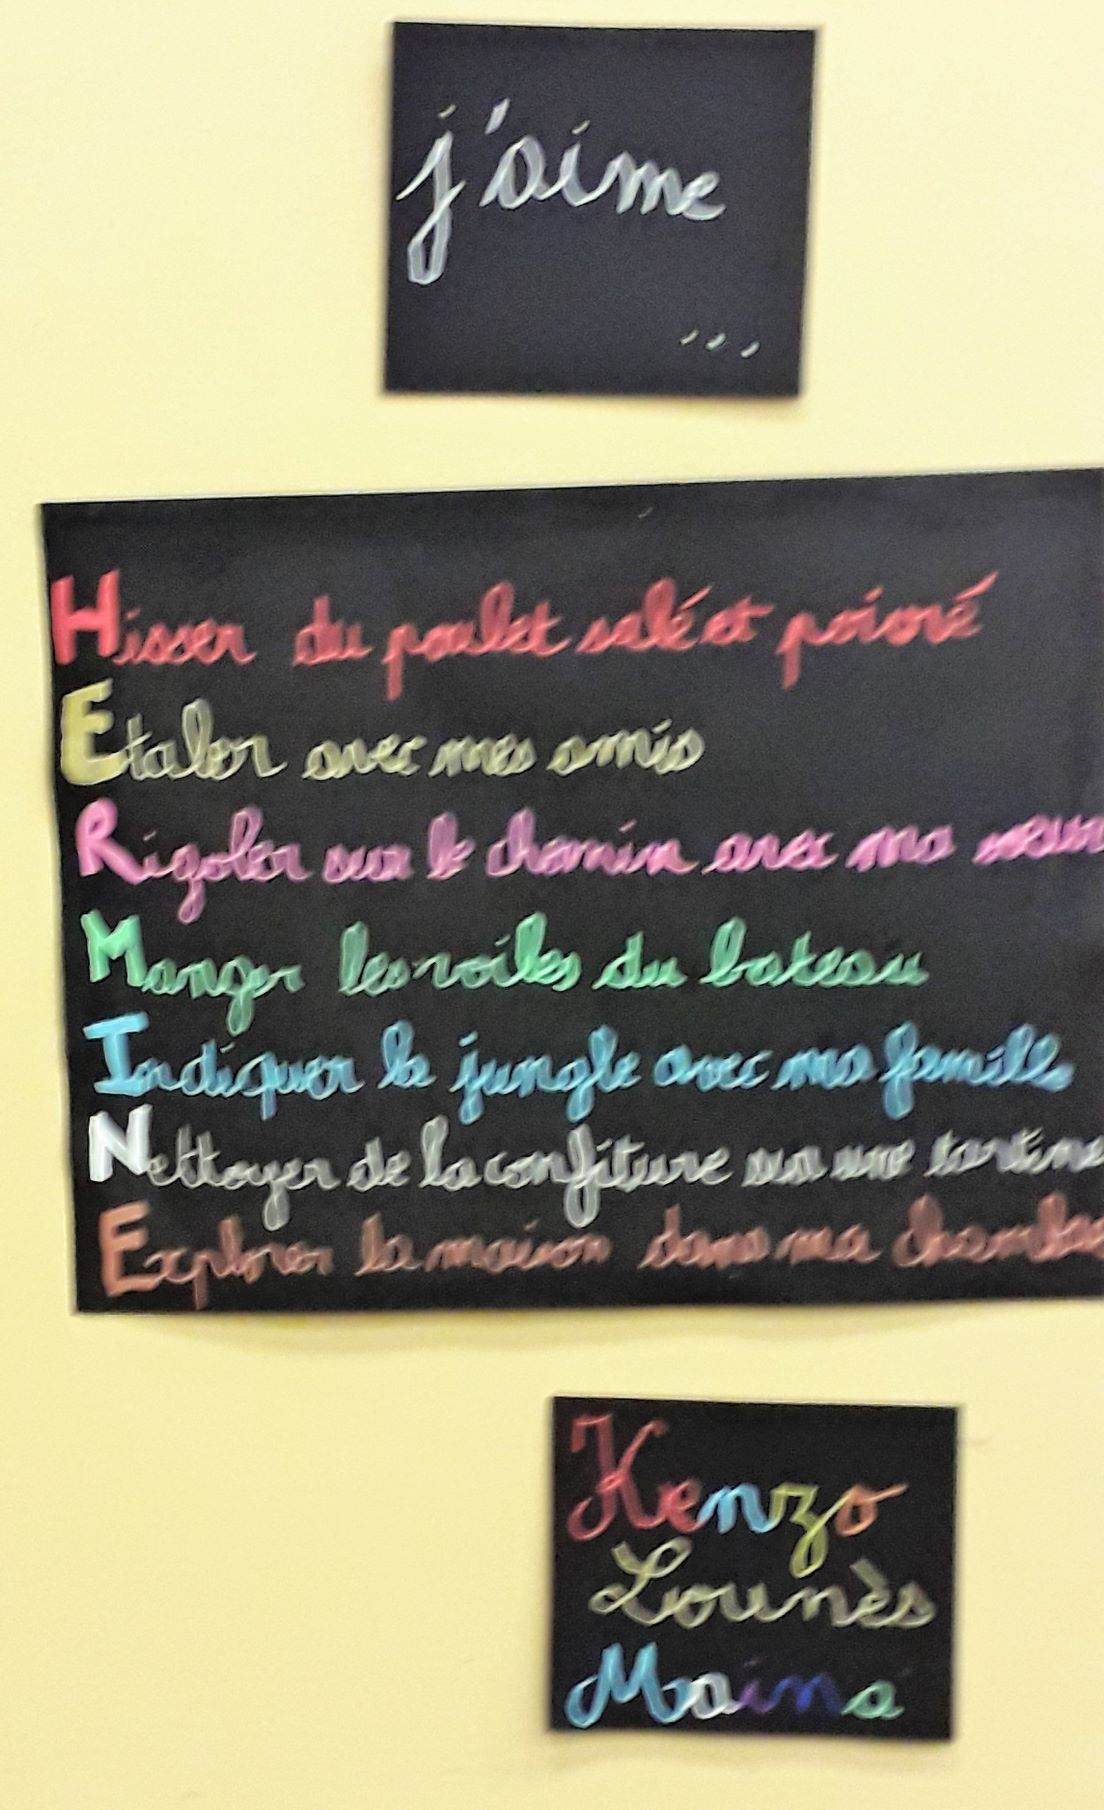 j'aime
...
Hisser du poulet salé et poivré
Etaler avec mes amis
Rigoler sur le chemin avec ma soeur
Manger les voiles du bateau
Indiquer la jungle avec ma famille
Nettoyer de la confiture sur une tartine
Explorer la maison dans ma chambre
Kenzo
Lounès
Maïna